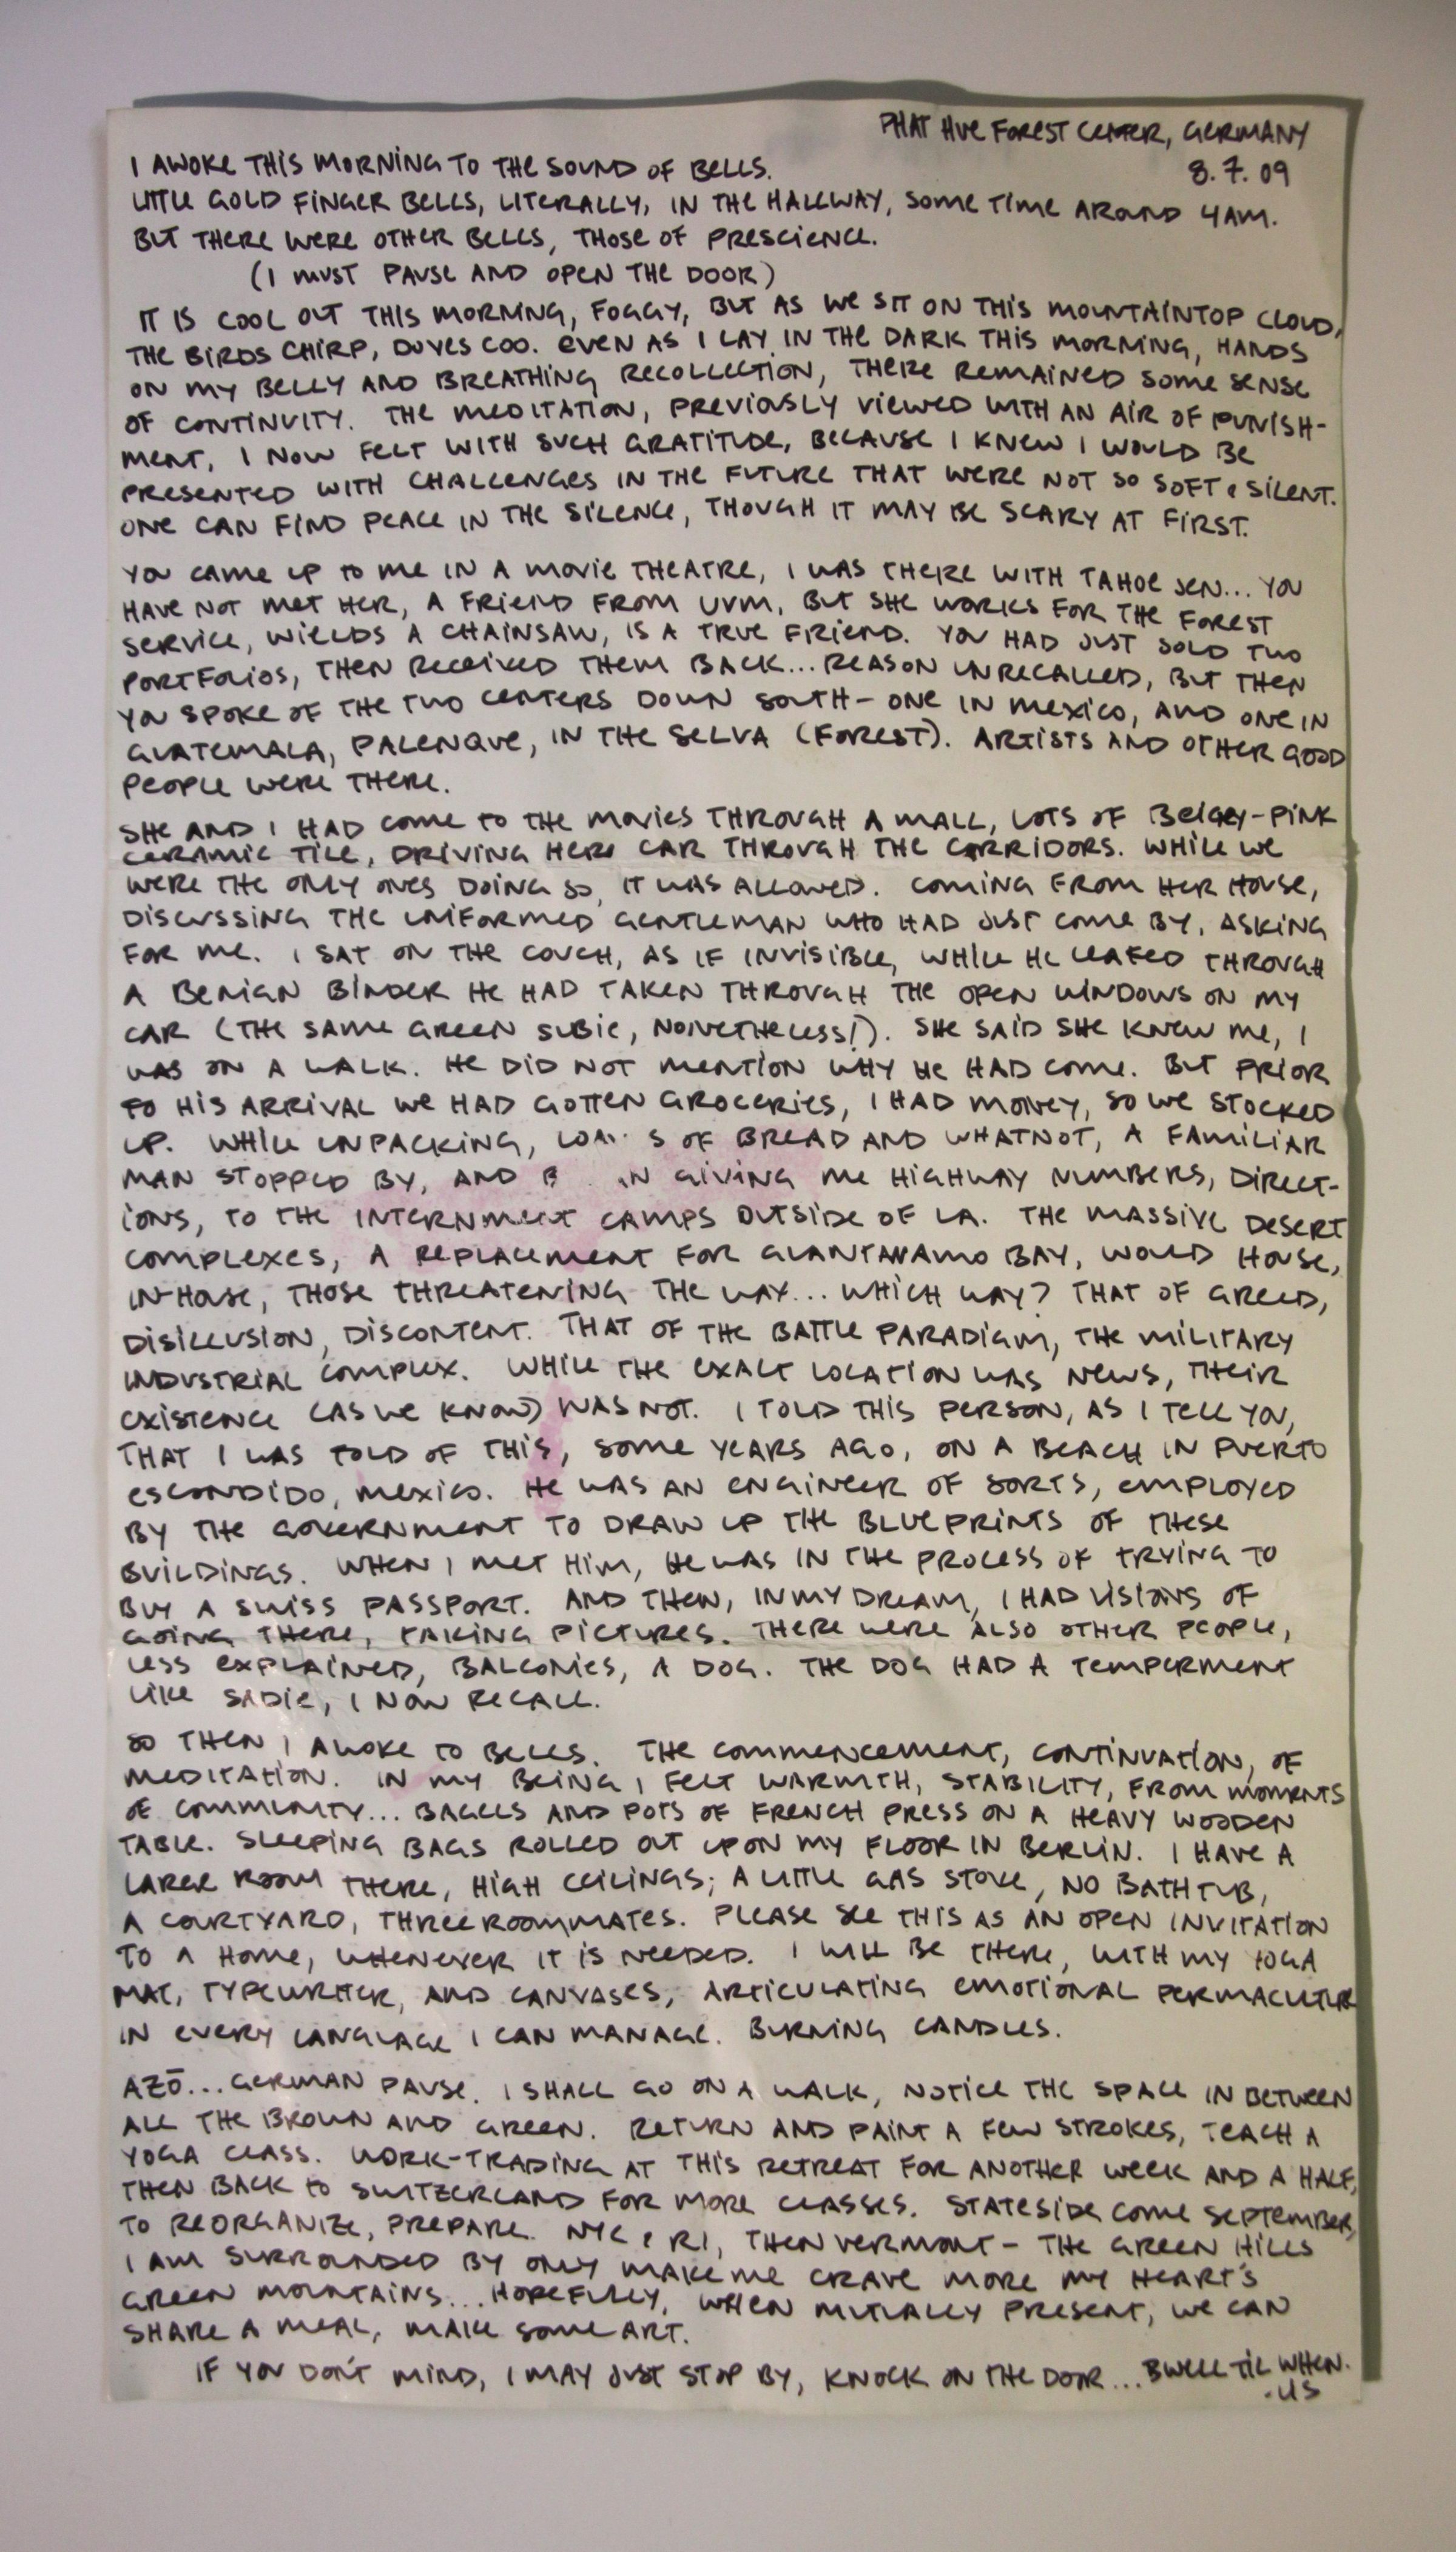 PHAT HUE FOREST CENTER, GERMANY
8.7.09
I AWOKE THIS MORNING TO THE SOUND OF BELLS.
LITTLE GOLD FINGER BELLS, LITERALLY, IN THE HALLWAY, SOME TIME AROUND 4AM.
BUT THERE WERE OTHER BELLS, THOSE OF PRESCIENCE.
(I MUST PAUSE AND OPEN THE DOOR)
IT IS COOL OUT THIS MORNING, FOGGY, BUT AS WE SIT ON THIS MOUNTAINTOP CLOUD,
THE BIRDS CHIRP, DOVES COO. EVEN AS I LAY IN THE DARK THIS MORNING, HANDS
ON MY BELLY AND BREATHING RECOLLECTION, THERE REMAINED SOME SENSE
OF CONTINUITY. THE MEDITATION, PREVIOUSLY VIEWED WITH AN AIR OF PUNISH-
MENT, I NOW FELT WITH SUCH GRATITUDE, BECAUSE I KNEW I WOULD BE
PRESENTED WITH CHALLENGES IN THE FUTURE THAT WERE NOT SO SOFT & SILENT.
ONE CAN FIND PEACE IN THE SILENCE, THOUGH IT MAY BE SCARY AT FIRST.
YOU CAME UP TO ME IN A MOVIE THEATRE, I WAS THERE WITH TAHOE JEN... YOU
HAVE NOT MET HER, A FRIEND FROM UVM, BUT SHE WORKS FOR THE FOREST
SERVICE, WIELDS A CHAINSAW, IS A TRUE FRIEND. YOU HAD JUST SOLD TWO
PORTFOLIOS, THEN RECEIVED THEM BACK... REASON UNRECALLED, BUT THEN
YOU SPOKE OF THE TWO CENTERS DOWN SOUTH - ONE IN MEXICO, AND ONE IN
GUATEMALA, PALENQUE, IN THE SELVA (FOREST). ARTISTS AND OTHER GOOD
PEOPLE WERE THERE.
SHE AND I HAD COME TO THE MOVIES THROUGH A MALL, LOTS OF BEIGEY-PINK
CERAMIC TILE, DRIVING HERE CAR THROUGH THE CORRIDORS. WHILE WE
WERE THE ONLY ONES DOING SO, IT WAS ALLOWED. COMING FROM HER HOUSE,
DISCUSSING THE UNIFORMED GENTLEMAN WHO HAD JUST COME BY, ASKING
FOR ME. I SAT ON THE COUCH, AS IF INVISIBLE, WHILE HE LEAFED THROUGH
A BENIGN BINDER HE HAD TAKEN THROUGH THE OPEN WINDOWS ON MY
CAR (THE SAME GREEN SUBIE, NONETHELESS!). SHE SAID SHE KNEW ME, I
WAS ON A WALK. HE DID NOT MENTION WHY HE HAD COME. BUT PRIOR
TO HIS ARRIVAL WE HAD GOTTEN GROCERIES, I HAD MONEY, SO WE STOCKED
UP. WHILE UNPACKING, S OF BREAD AND WHATNOT, A FAMILIAR
MAN STOPPED BY, AND GIVING ME HIGHWAY NUMBERS, DIRECT-
IONS, TO THE INTERNMENT CAMPS OUTSIDE OF LA. THE MASSIVE DESERT
COMPLEXES, A REPLACEMENT FOR GUANTANAMO BAY, WOULD HOUSE,
IN-HOUSE, THOSE THREATENING THE WAY... WHICH WAY? THAT OF GREED,
DISILLUSION, DISCONTENT. THAT OF THE BATTLE PARADIGM, THE MILITARY
INDUSTRIAL COMPLEX. WHILE THE EXACT LOCATION WAS NEWS, THEIR
EXISTENCE (AS WE KNOW) WAS NOT. I TOLD THIS PERSON, AS I TELL YOU,
THAT I WAS TOLD OF THIS, SOME YEARS AGO, ON A BEACH IN PUERTO
ESCONDIDO, MEXICO. HE WAS AN ENGINEER OF SORTS, EMPLOYED
BY THE GOVERNMENT TO DRAW UP THE BLUEPRINTS OF THESE
BUILDINGS. WHEN I MET HIM, HE WAS IN THE PROCESS OF TRYING TO
BUY A SWISS PASSPORT. AND THEN, IN MY DREAM, I HAD VISIONS OF
GOING THERE, TAKING PICTURES. THERE WERE ALSO OTHER PEOPLE,
LESS EXPLAINED, BALCONIES, A DOG. THE DOG HAD A TEMPERMENT
LIKE SADIE, I NOW RECALL.
SO THEN I AWOKE TO BELLS. THE COMMENCEMENT, CONTINUATION, OF
MEDITATION. IN MY BEING I FELT WARMTH, STABILITY, FROM MOMENTS
OF COMMUNITY... BAGELS AND POTS OF FRENCH PRESS ON A HEAVY WOODEN
TABLE. SLEEPING BAGS ROLLED OUT UPON MY FLOOR IN BERLIN. I HAVE A
LARGE ROOM THERE, HIGH CEILINGS; A LITTLE GAS STOVE, NO BATHTUB,
A COURTYARD, THREE ROOMMATES. PLEASE SEE THIS AS AN OPEN INVITATION
TO A HOME, WHENEVER IT IS NEEDED. I WILL BE THERE, WITH MY YOGA
MAT, TYPEWRITER, AND CANVASES, ARTICULATING EMOTIONAL PERMACULTURE
IN EVERY LANGUAGE I CAN MANAGE. BURNING CANDLES.
AZŌ... GERMAN PAUSE. I SHALL GO ON A WALK, NOTICE THE SPACE IN BETWEEN
ALL THE BROWN AND GREEN. RETURN AND PAINT A FEW STROKES, TEACH A
YOGA CLASS. WORK-TRADING AT THIS RETREAT FOR ANOTHER WEEK AND A HALF,
THEN BACK TO SWITZERLAND FOR MORE CLASSES. STATESIDE COME SEPTEMBER,
TO REORGANIZE, PREPARE. NYC & RI, THEN VERMONT - THE GREEN HILLS
I AM SURROUNDED BY ONLY MAKE ME CRAVE MORE MY HEART'S
GREEN MOUNTAINS... HOPEFULLY, WHEN MUTUALLY PRESENT, WE CAN
SHARE A MEAL, MAKE SOME ART.
IF YOU DON'T MIND, I MAY JUST STOP BY, KNOCK ON THE DOOR... BWELL TIL WHEN.